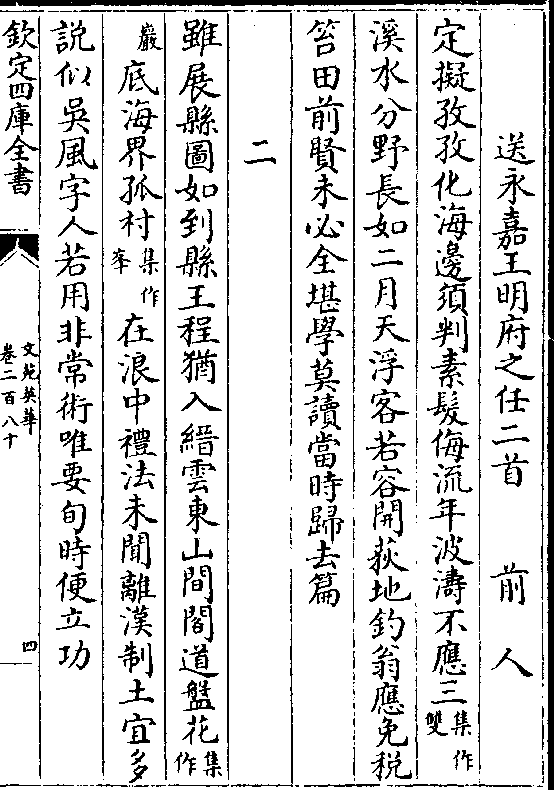 送永嘉王明府之任二首　前人
定擬孜孜化海邊須判素髮侮流年波濤不應三集作雙
溪水分野長如二月天浮客若容開荻地釣翁應免税
笞田前賢未必全堪學莫讀當時歸去篇
二
雖展縣圖如到縣王程猶入縉雲東山間閣道盤花集作
巖底海界孤村集作峯在浪中禮法未聞離漢制土宜多
説似吳風字人若用非常術唯要旬時便立功
欽定四庫全書
文苑英華
卷二百八十
四